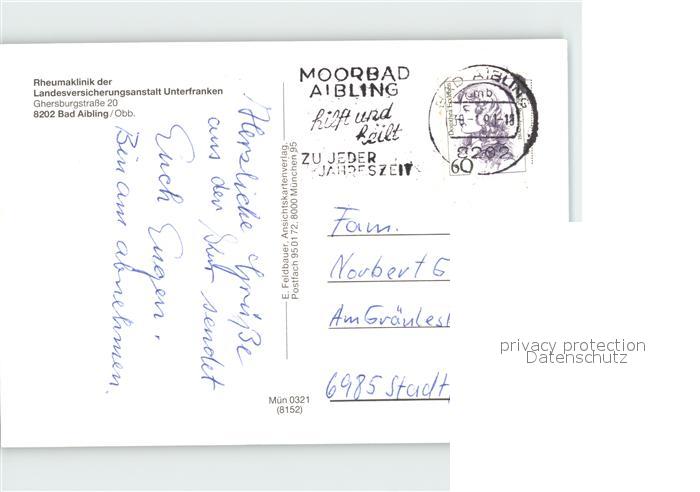 Rheumaklinik der
Landesversicherungsanstalt Unterfranken
Ghersburgstraße 20
8202 Bad Aibling/Obb.
Herzliche Grüße
aus der Kur sendet
Euch Eugen.
Bin am abnehmen.
E. Feldbauer, Ansichtskartenverlag,
Postfach 950172, 8000 München 95
Mün 0321
(8152)
MOORBAD
AIBLING
hilft und
heilt
ZU JEDER
JAHRESZEIT
BAD AIBLING
8202
60
Fam.
Norbert G
Am Gränles
6985 Stadt
privacy protection
Datenschutz